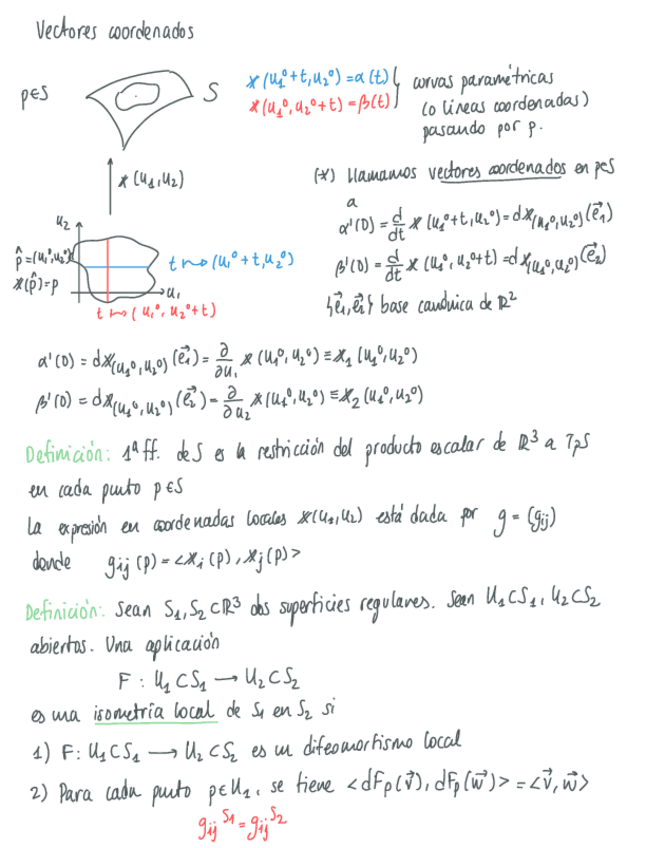 Vectores coordenados
p∈S
S
𝕏(u₁⁰+t,u₂⁰)=α(t)
𝕏(u₁⁰,u₂⁰+t)=β(t)
curvas paramétricas
(o líneas coordenadas)
pasando por p.
𝕏(u₁,u₂)
(*) Llamamos vectores coordenados en p∈S
a
α'(0)=d/dt 𝕏(u₁⁰+t,u₂⁰)=d𝕏(u₁⁰,u₂⁰)(e⃗₁)
β'(0)=d/dt 𝕏(u₁⁰,u₂⁰+t)=d𝕏(u₁⁰,u₂⁰)(e⃗₂)
{e⃗₁,e⃗₂} base canónica de ℝ²
u₂
p̂=(u₁⁰,u₂⁰)
𝕏(p̂)=p
t⇝(u₁⁰+t,u₂⁰)
u₁
t⇝(u₁⁰,u₂⁰+t)
α'(0)=d𝕏(u₁⁰,u₂⁰)(e⃗₁)=∂/∂u₁ 𝕏(u₁⁰,u₂⁰)≡𝕏₁(u₁⁰,u₂⁰)
β'(0)=d𝕏(u₁⁰,u₂⁰)(e⃗₂)=∂/∂u₂ 𝕏(u₁⁰,u₂⁰)≡𝕏₂(u₁⁰,u₂⁰)
Definición: 1ª ff. de S es la restricción del producto escalar de ℝ³ a TpS
en cada punto p∈S
La expresión en coordenadas locales 𝕏(u₁,u₂) está dada por g=(gij)
donde gij(p)=<𝕏i(p),𝕏j(p)>
Definición: Sean S₁,S₂⊂ℝ³ dos superficies regulares. Sean U₁⊂S₁,U₂⊂S₂
abiertos. Una aplicación
F:U₁⊂S₁→U₂⊂S₂
es una isometría local de S₁ en S₂ si
1) F:U₁⊂S₁→U₂⊂S₂ es un difeomorfismo local
2) Para cada punto p∈U₁, se tiene <dFp(v⃗),dFp(w⃗)>=<v⃗,w⃗>
gij^S₁=gij^S₂